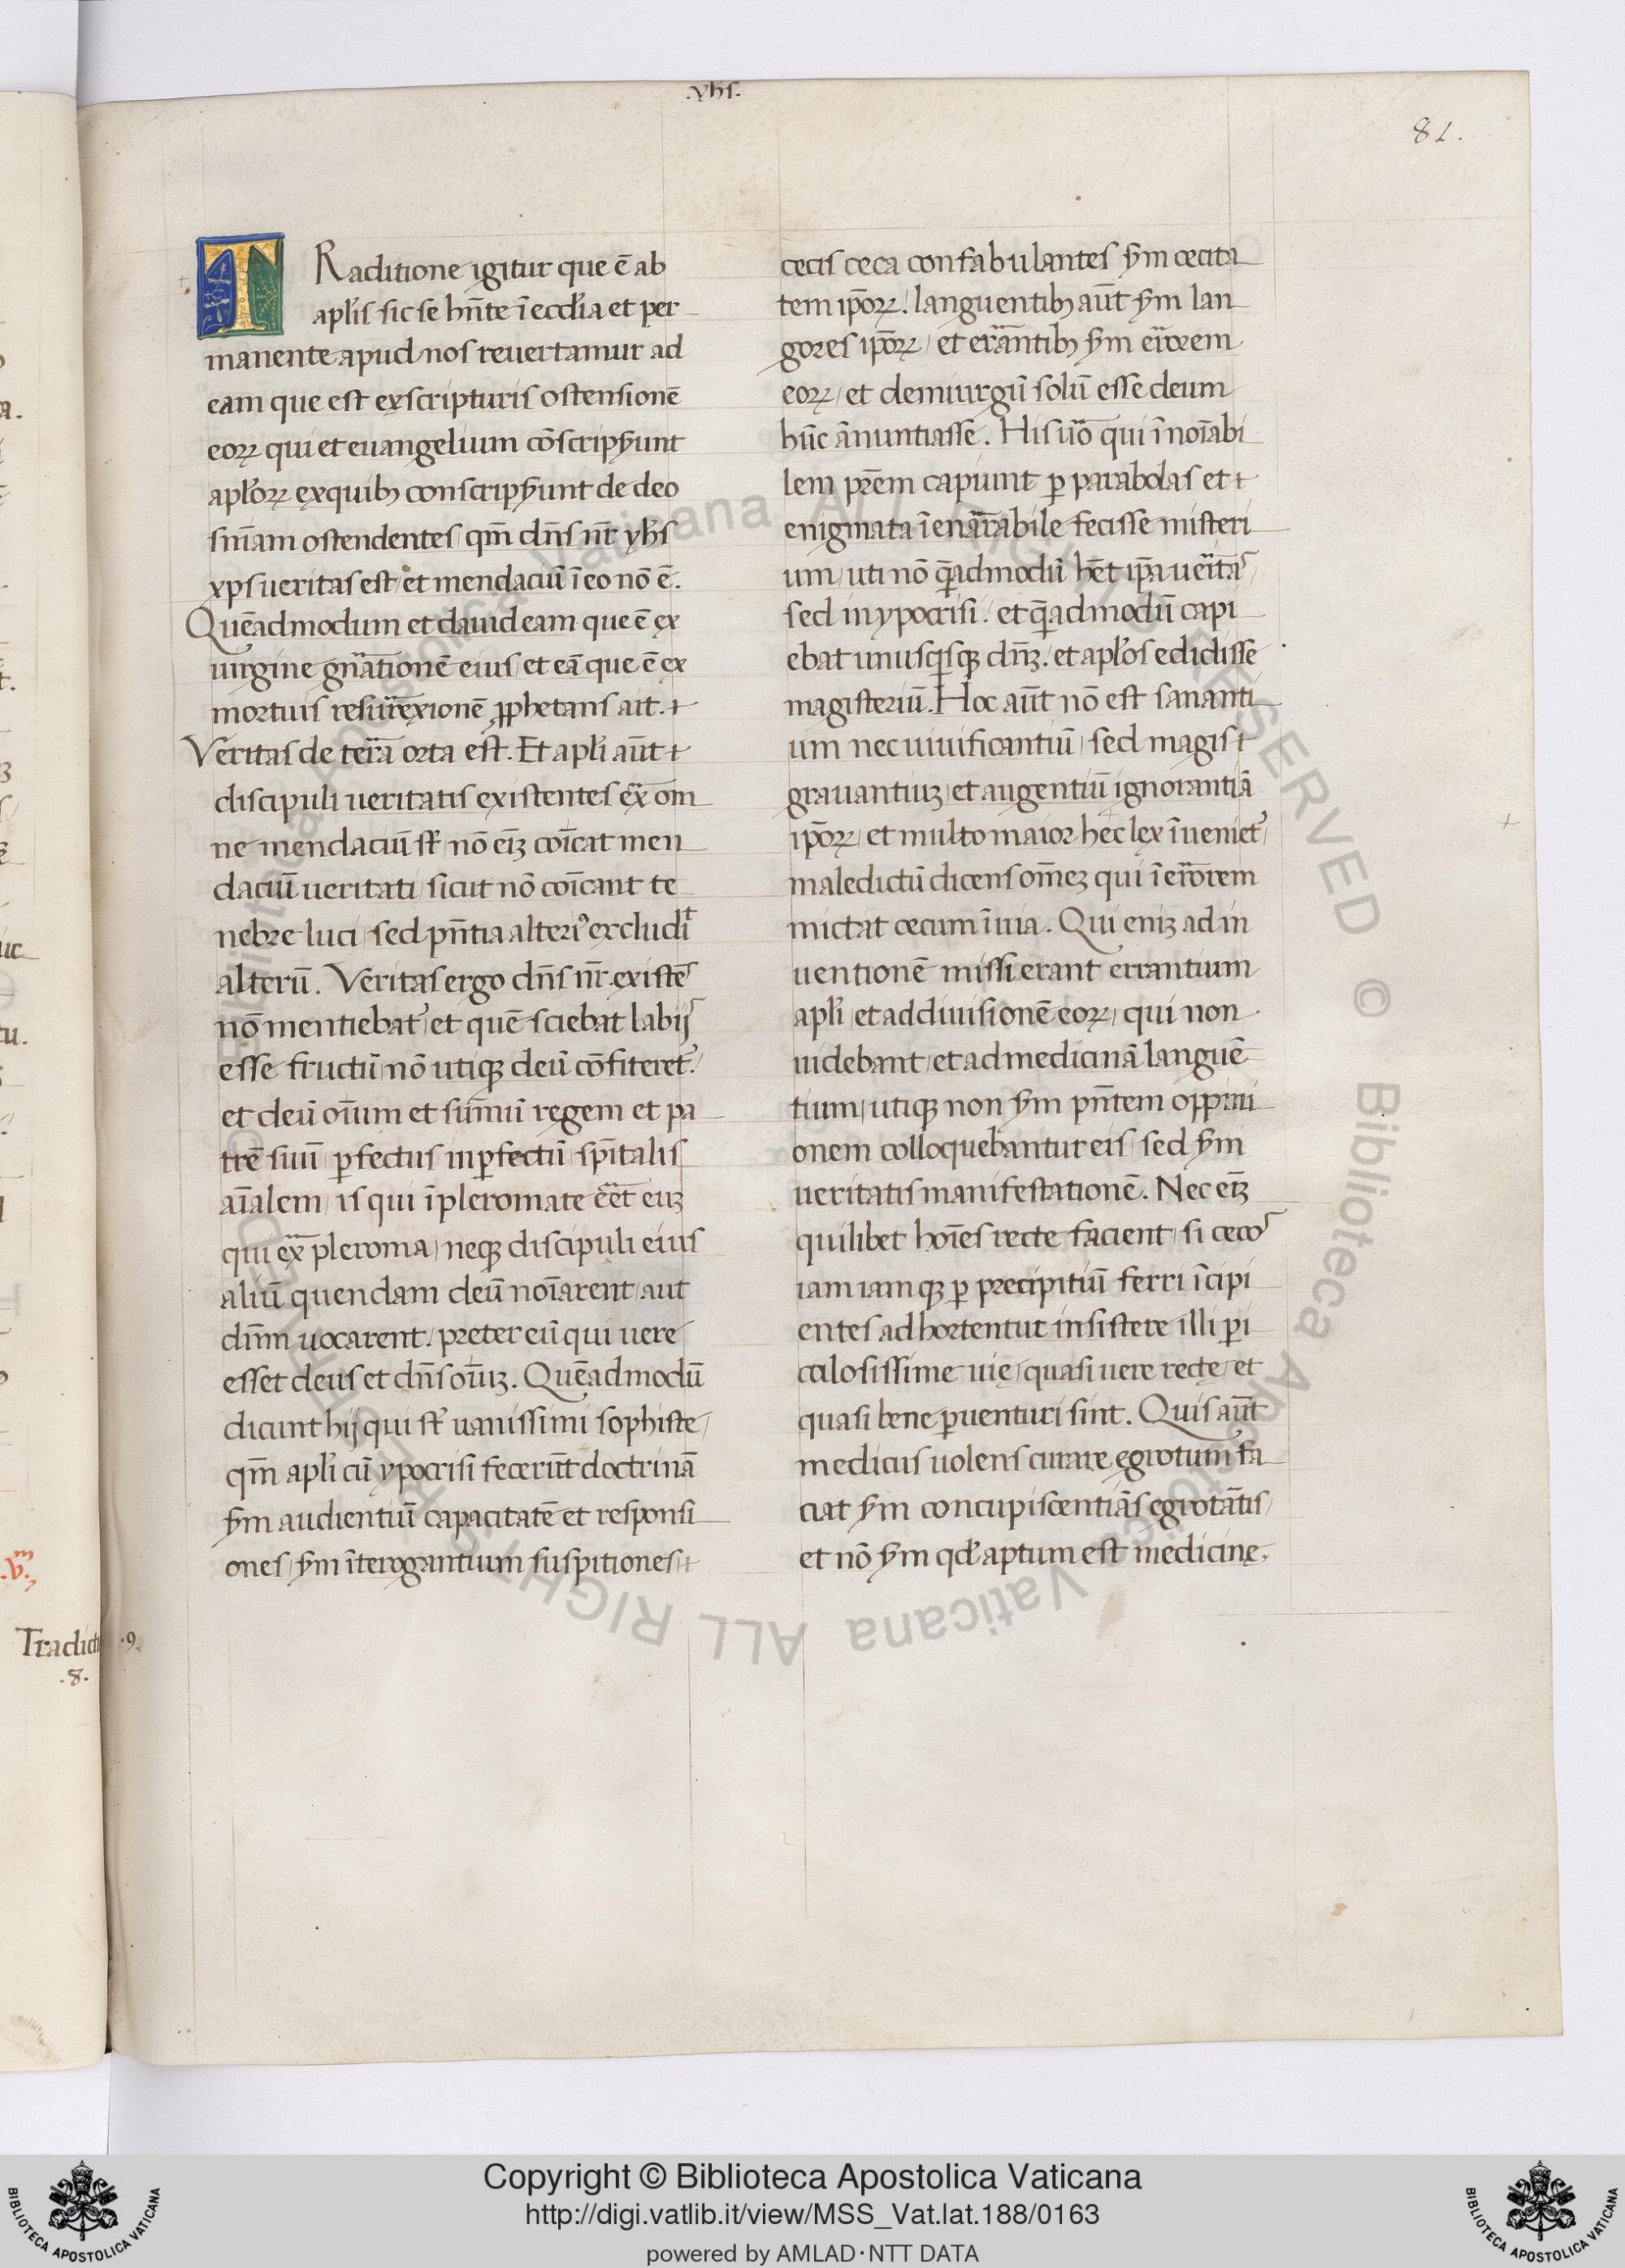 .yhs.
81.
TRaditione igitur que ē ab
apl̄is sic se hn̄te ī eccl̄ia et per
manente apud nos reuertamur ad
eam que est ex scripturis ostensionē
eoꝝ qui et euangelium cōscripṡunt
apl̄oꝝ ex quibꝫ conscripṡunt de deo
sn̄iam ostendentes qm̄ dn̄s nr̄ yh̄s
xp̄s ueritas est et mendaciū ī eo nō ē.
Quēadmodum et dauid eam que ē ex
uirgine gn̄ationē eius et eā que ē ex
mortuis resur̄exionē ꝓphetans ait.
Veritas de ter̄a orta est. Et apl̄i aūt
discipuli ueritatis existentes ex̄ om
ne mendaciū st̄ nō eīꝫ coīcat men
daciū ueritati sicut nō coīcant te
nebre luci sed pn̄tia alteriꝰ excludit
alterū. Veritas ergo dn̄s nr̄ existēs
nō mentiebat᷑ et quē sciebat labijs
esse fructū nō utiqꝫ deū cōfiteret᷑.
et deū oīum et sūmū regem et pa
trē suū ꝑfectus inꝑfectū spītalis
aīalem is qui ī pleromate eēt euꝫ
qui ex̄ pleroma neqꝫ discipuli eius
aliū quendam deū noīarent aut
dn̄m uocarent. preter eū qui uere
esset deus et dn̄s oīuꝫ. Quēadmodū
dicunt hij qui st̄ uanissimi sophiste
qm̄ apl̄i cū ypocrisi fecerūt doctrinā
ẜm audientiū capacitatē et responsi
ones ẜm īterograntium suspitiones
cecis ceca confabulantes ẜm cecita
tem ip̄oꝝ. languentibꝫ aūt ẜm lan
gores ip̄oꝝ et er̄antibꝫ ẜm er̄orem
eoꝝ et demiurgū solū esse deum
hūc ānuntiasse. His uō qui īnoīabi
lem pr̄em capiunt ꝑ parabolas et
enigmata īenar̄abile fecisse misteri
um uti nō q̄admodū hēt ip̄a ueritas
sed in ypocrisi. et q̄admodū capi
ebat unusqisqꝫ dn̄ꝫ. et apl̄os edidisse
magisteriū. Hoc aūt nō est sananti
um nec uiuificantiū sed magis
grauantiuꝫ et augentiū ignorantiā
ip̄oꝝ et multo maior hec lex īueniet᷑
maledictū dicens om̄eꝫ qui ī er̄orem
mictat cecum ī uia. Qui eniꝫ ad in
uentionē missi erant errantium
apl̄i et ad diuisionē eoꝝ qui non
uidebant et ad medicinā languē
tium utiqꝫ non ẜm pn̄tem oppini
onem colloquebantur eis sed ẜm
ueritatis manifestationē. Nec eīꝫ
quilibet hoīes recte facient si cecos
iam iamqꝫ ꝑ precipitiū ferri īcipi
entes adhortentur insistere illi ꝑi
culosissime uię quasi uere rectę et
quasi bene ꝑuenturi sint. Quis aūt
medicus uolens curare egrotum fa
ciat ẜm concupiscentiās egrotātis
et nō ẜm qd̄ aptum est medicinę.
.b.m
Tradict
.8.
.9.
Copyright © Biblioteca Apostolica Vaticana
http://digi.vatlib.it/view/MSS_Vat.lat.188/0163
powered by AMLAD·NTT DATA
BIBLIOTECA APOSTOLICA VATICANA
BIBLIOTECA APOSTOLICA VATICANA